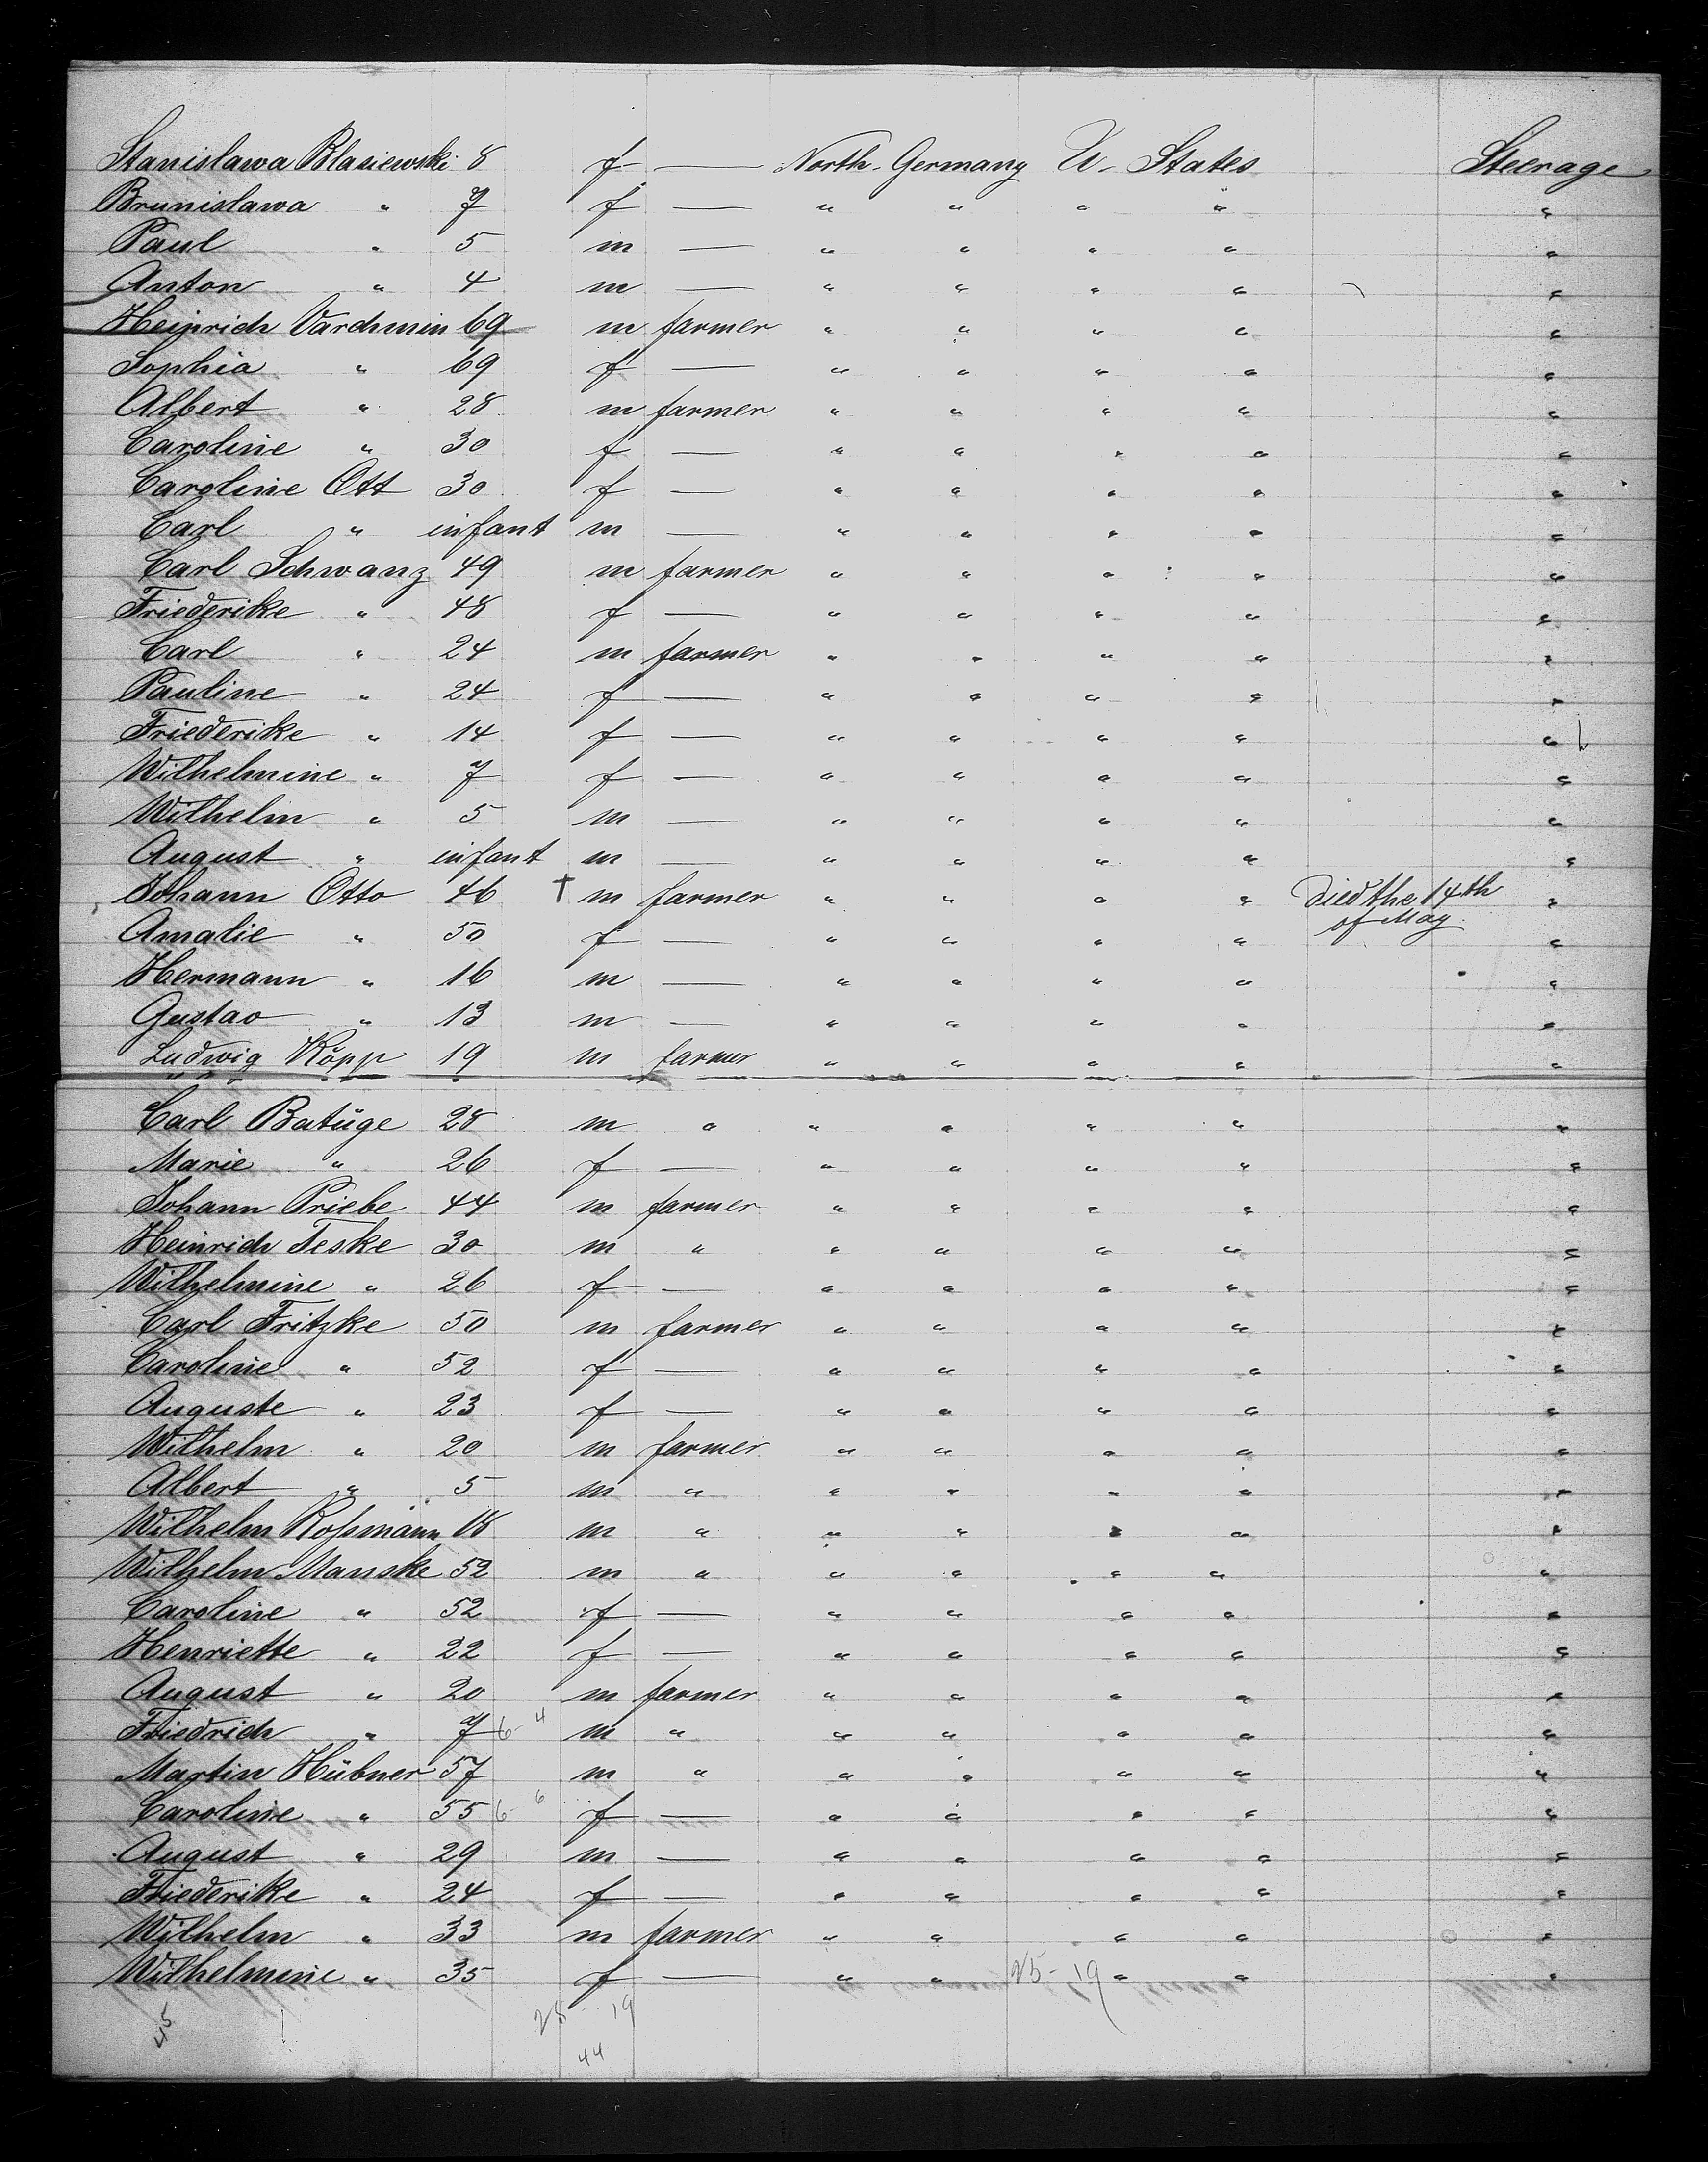 Stanislawa Blasiewski 8 f — North. Germany U. States Steerage
Brunislawa " 7 f — " " " " "
Paul " 5 m — " " " " "
Anton " 4 m — " " " " "
Heinrich Vardmin 69 m farmer " " " " "
Sophia " 69 f — " " " " "
Albert " 28 m farmer " " " " "
Caroline " 30 f — " " " " "
Caroline Ott 30 f — " " " " "
Carl " infant m — " " " " "
Carl Schwanz 49 m farmer " " " " "
Friederike " 48 f — " " " " "
Carl " 24 m farmer " " " " "
Pauline " 24 f — " " " " "
Friederike " 14 f — " " " " "
Wilhelmine " 7 f — " " " " "
Wilhelm " 5 m — " " " " "
August " infant m — " " " " "
Johann Otto 46 † m farmer " " " " died the 14th "
of May
Amalie " 50 f — " " " " "
Hermann " 16 m — " " " " "
Gustav " 13 m — " " " " "
Ludwig Köpp 19 m farmer " " " " "
Carl Batüge 28 m " " " " " "
Marie " 26 f — " " " " "
Johann Priebe 44 m farmer " " " " "
Heinrich Teske 30 m " " " " " "
Wilhelmine " 26 f — " " " " "
Carl Fritzke 50 m farmer " " " " "
Caroline " 52 f — " " " " "
Auguste " 23 f — " " " " "
Wilhelm " 20 m farmer " " " " "
Albert " 5 m " " " " " "
Wilhelm Roßmann 18 m " " " " " "
Wilhelm Manske 52 m " " " " " "
Caroline " 52 f — " " " " "
Henriette " 22 f — " " " " "
August " 20 m farmer " " " " "
Friedrich " 7 6- 4 m " " " " " "
Martin Hübner 57 m " " " " " "
Caroline " 55 6- 6 f — " " " " "
August " 29 m — " " " " "
Friederike " 24 f — " " " " "
Wilhelm " 33 m farmer " " " " "
Wilhelmine " 35 f — " " 25-19 " " "
45 28 19
44